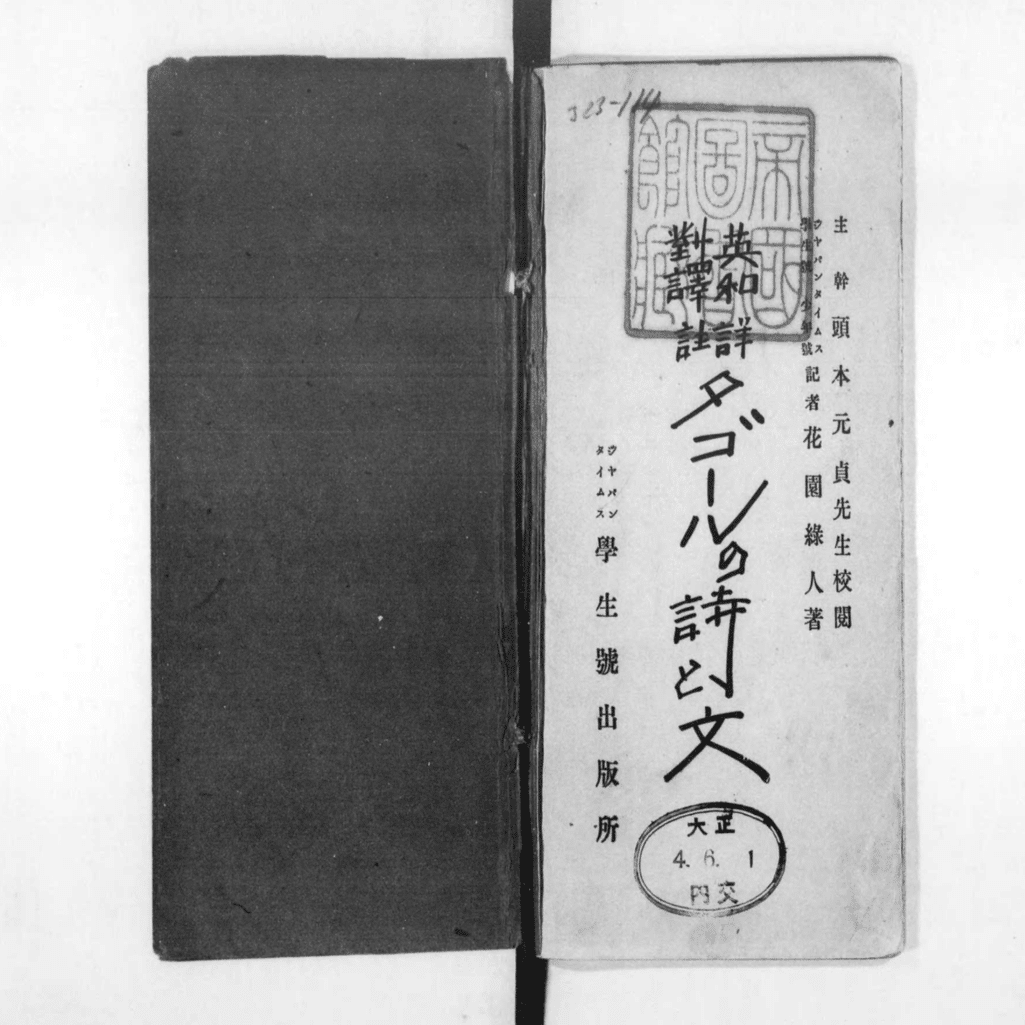 323-114
帝國圖書館藏
主幹 頭本元貞先生校閱
ヂャパンタイムス
學生號 少年號 記者 花園綠人著
英和對譯
詳註
タゴールの詩と文
ヂャパン
タイムス
學生號出版所
大正
4. 6. 1
內交